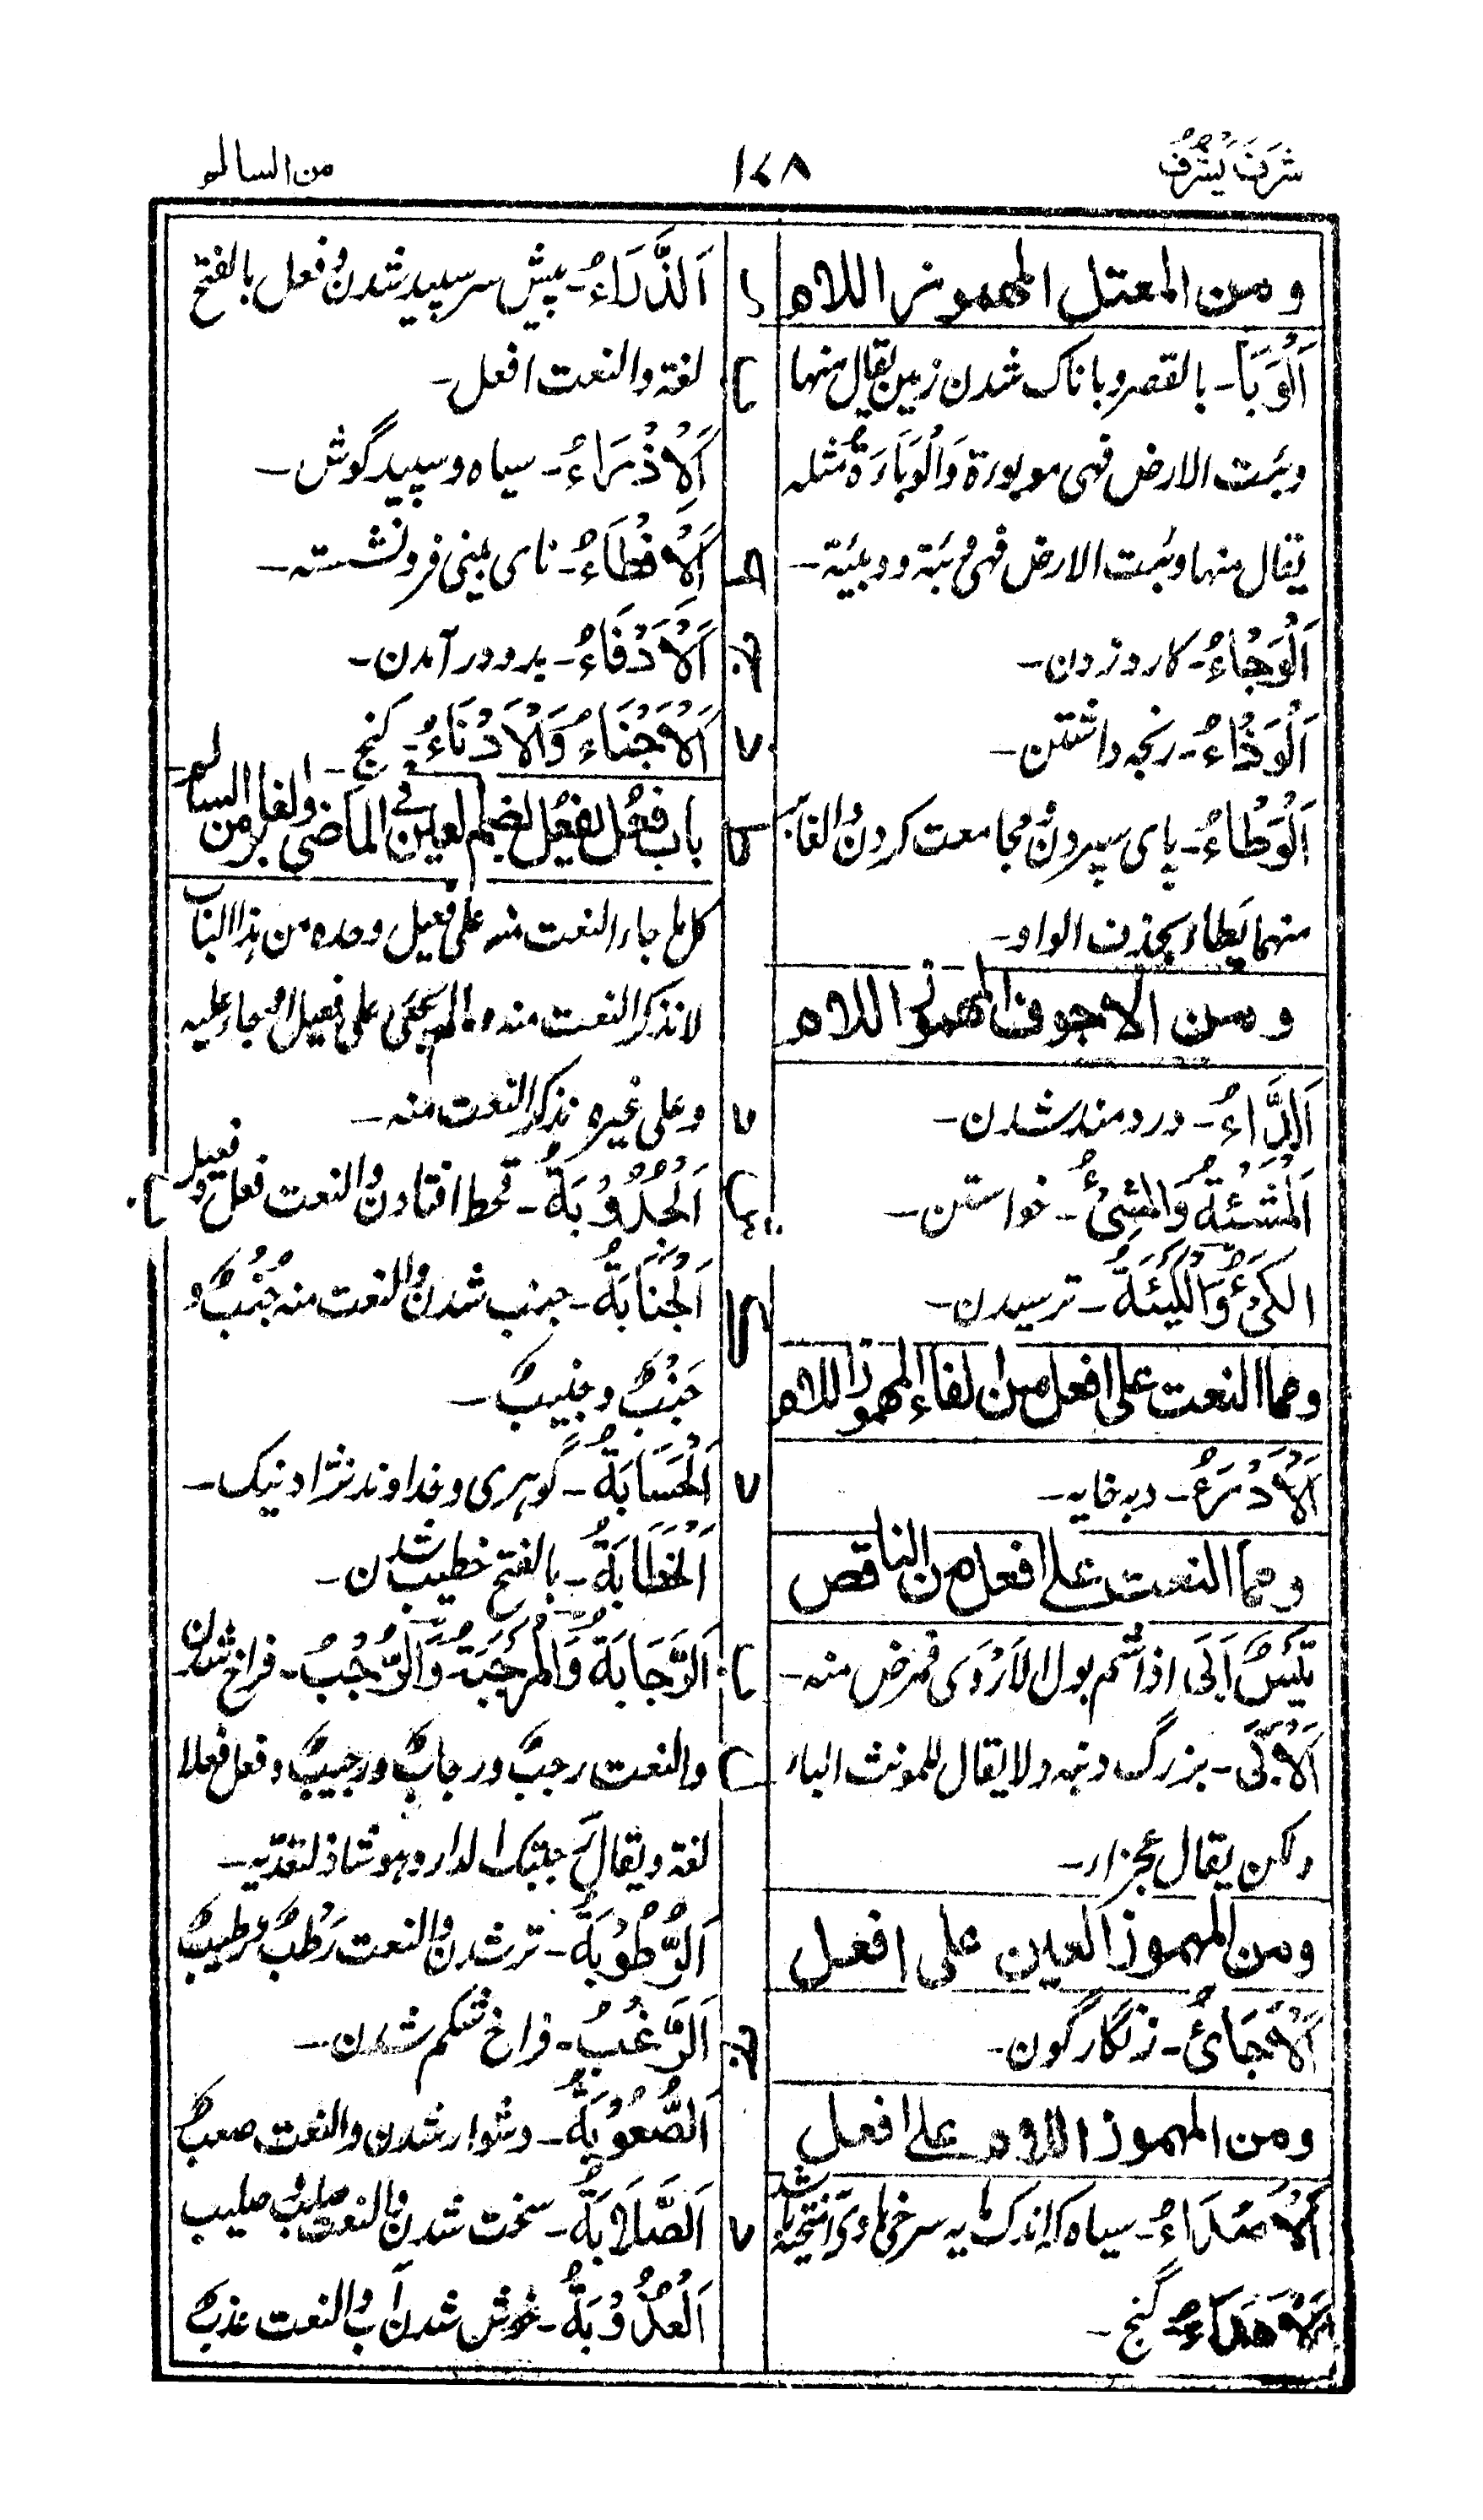 شَرُفَ يَشْرُفُ
١٧٨
من السالم
ومن المعتل المهموز اللام
اَلْوَبَأ۔ بالقصر وباناک شدن زمین یقال منہا
وبئت الارض فہی موبورة وَالْوَبَارَةُ مثلہ
یقال منہا وبئت الارض فہی وبئة ووبیئة۔
اَلْوَجْاءُ۔ کارد زدن۔
اَلْوَذْاءُ۔ رنجہ داشتن۔
اَلْوَطْاءُ۔ پای سپردن ومجامعت کردن والغابر
منہما یَطاء بحذف الواو۔
ومن الاجوف المهموز اللام
اَلدَّاءُ۔ دردمند شدن۔
اَلْمَشِئَةُ وَالْمَشِئُ۔ خواستن۔
الکَئُ وَالْکَیْئَةُ۔ ترسیدن۔
ومما النعت على افعل من الفاء المهموز اللام
اَلْاَدْرَءُ۔ دبہ خایہ۔
ومما النعت على افعل من الناقص
تَیْسٌ اٰبَی اذا شم بول الاَرْوَی فمرض منہ۔
اَلْاٰلَی۔ بزرگ دنبہ ولا یقال للمونث الیاء
ولکن یقال عجزاء۔
ومن المهموز العين على افعل
اَلْاَجْاَئُ۔ زنگارگون۔
ومن المهموز اللام على افعل
اَلْاَصْدَاءُ۔ سیاہ کہ اندک مایہ سرخی باوی آمیختہ باشد
اَلْاَهْدَاءُ۔ گنج۔
اَلذَّرَاءُ۔ پیش سر سپید شدن وفعل بالفتح
لغة والنعت افعل۔
اَلْاَذْرَاءُ۔ سیاہ و سپید گوش۔
اَلْاَفْطَاءُ۔ نای بینی فرونشستہ۔
اَلْاَدْفَاءُ۔ بدو درآمدن۔
اَلْاَجْنَاءُ وَالْاَدْنَاءُ۔ کنج۔
باب فعُل يفعُل بضم العين في الماضي والغابر من السالم
کل ما جاء النعت منہ علی فعیل وحدہ من ہذا الباب
لا نذکر النعت منہ وما لم یجئ علی فعیل او جاء علیہ
وعلی غیرہ نذکر النعت منہ۔
اَلْجُدُوْبَةُ۔ قحط افتادن والنعت فعل وفعیل
اَلْجَنَابَةُ۔ جنب شدن والنعت منہ جُنُبٌ و
جَنْبٌ وجنیبٌ۔
اَلْحَسَابَةُ۔ گوہری وخداوند نژاد نیک۔
اَلْخَطَابَةُ۔ بالفتح خطیب شدن۔
اَلرَّحَابَةُ وَالْمَرْحَبَةُ وَالرُّحْبُ۔ فراخ شدن
والنعت رحبٌ ورحابٌ ورحیبٌ وفعل فعلا
لغة ویقال رحبتک الدار وہو شاذ لتعدیہ۔
اَلرُّطُوْبَةُ۔ تر شدن والنعت رَطْبٌ ورطیبٌ
اَلرُّغْبُ۔ فراخ شکم شدن۔
اَلصُّعُوْبَةُ۔ دشوار شدن والنعت صعبٌ
اَلصَّلَابَةُ۔ سخت شدن والنعت صلبٌ وصلیب
اَلْعُذُوْبَةُ۔ خوش شدن آب والنعت عذبٌ